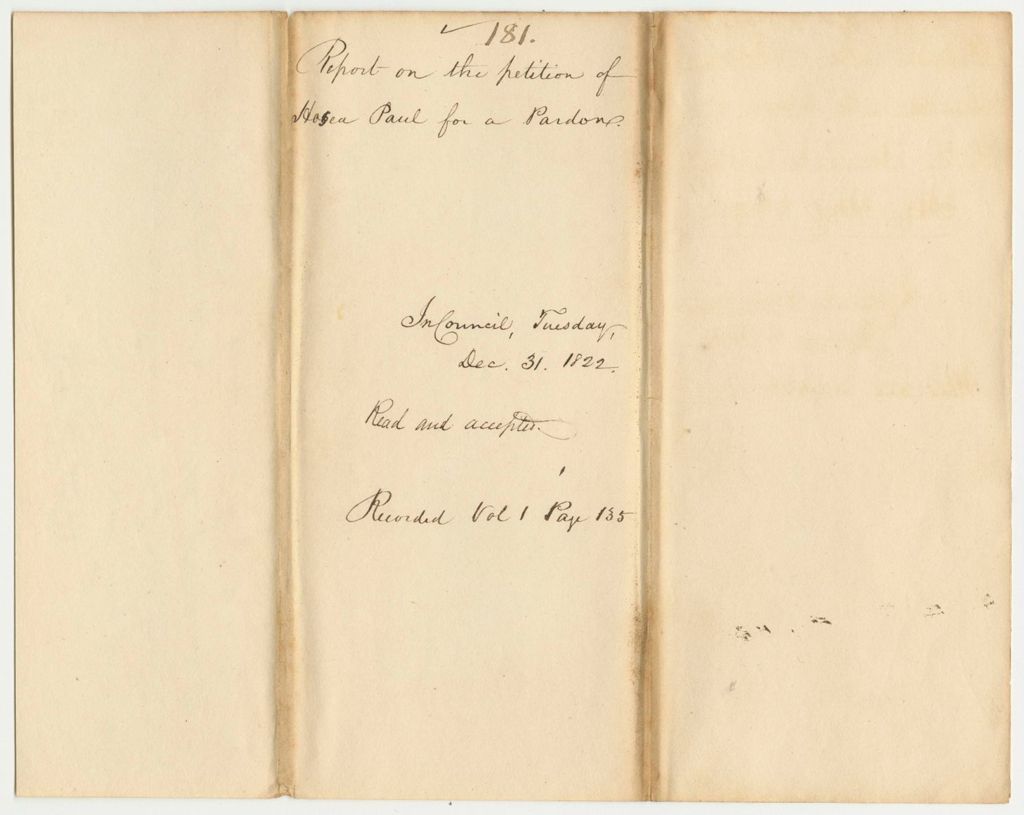 181.
Report on the petition of
Hosea Paul for a Pardon.
In Council, Tuesday,
Dec. 31. 1822.
Read and accepted.
Recorded Vol 1 Page 135